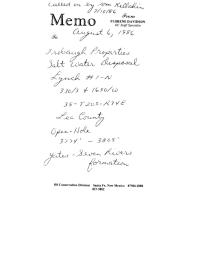 Called in by Tom Kellahin
7/10/86
Memo
From
FLORENE DAVIDSON
OC Staff Specialist
To
August 6, 1986
Trobaugh Properties
Salt Water Disposal
Lynch #1-N
330/S & 1650/W
35-T20S-R34E
Lea County
Open-Hole
3774' - 3805'
Yates-Seven Rivers
formation
Oil Conservation Division Santa Fe, New Mexico 87504-2088
827-5802